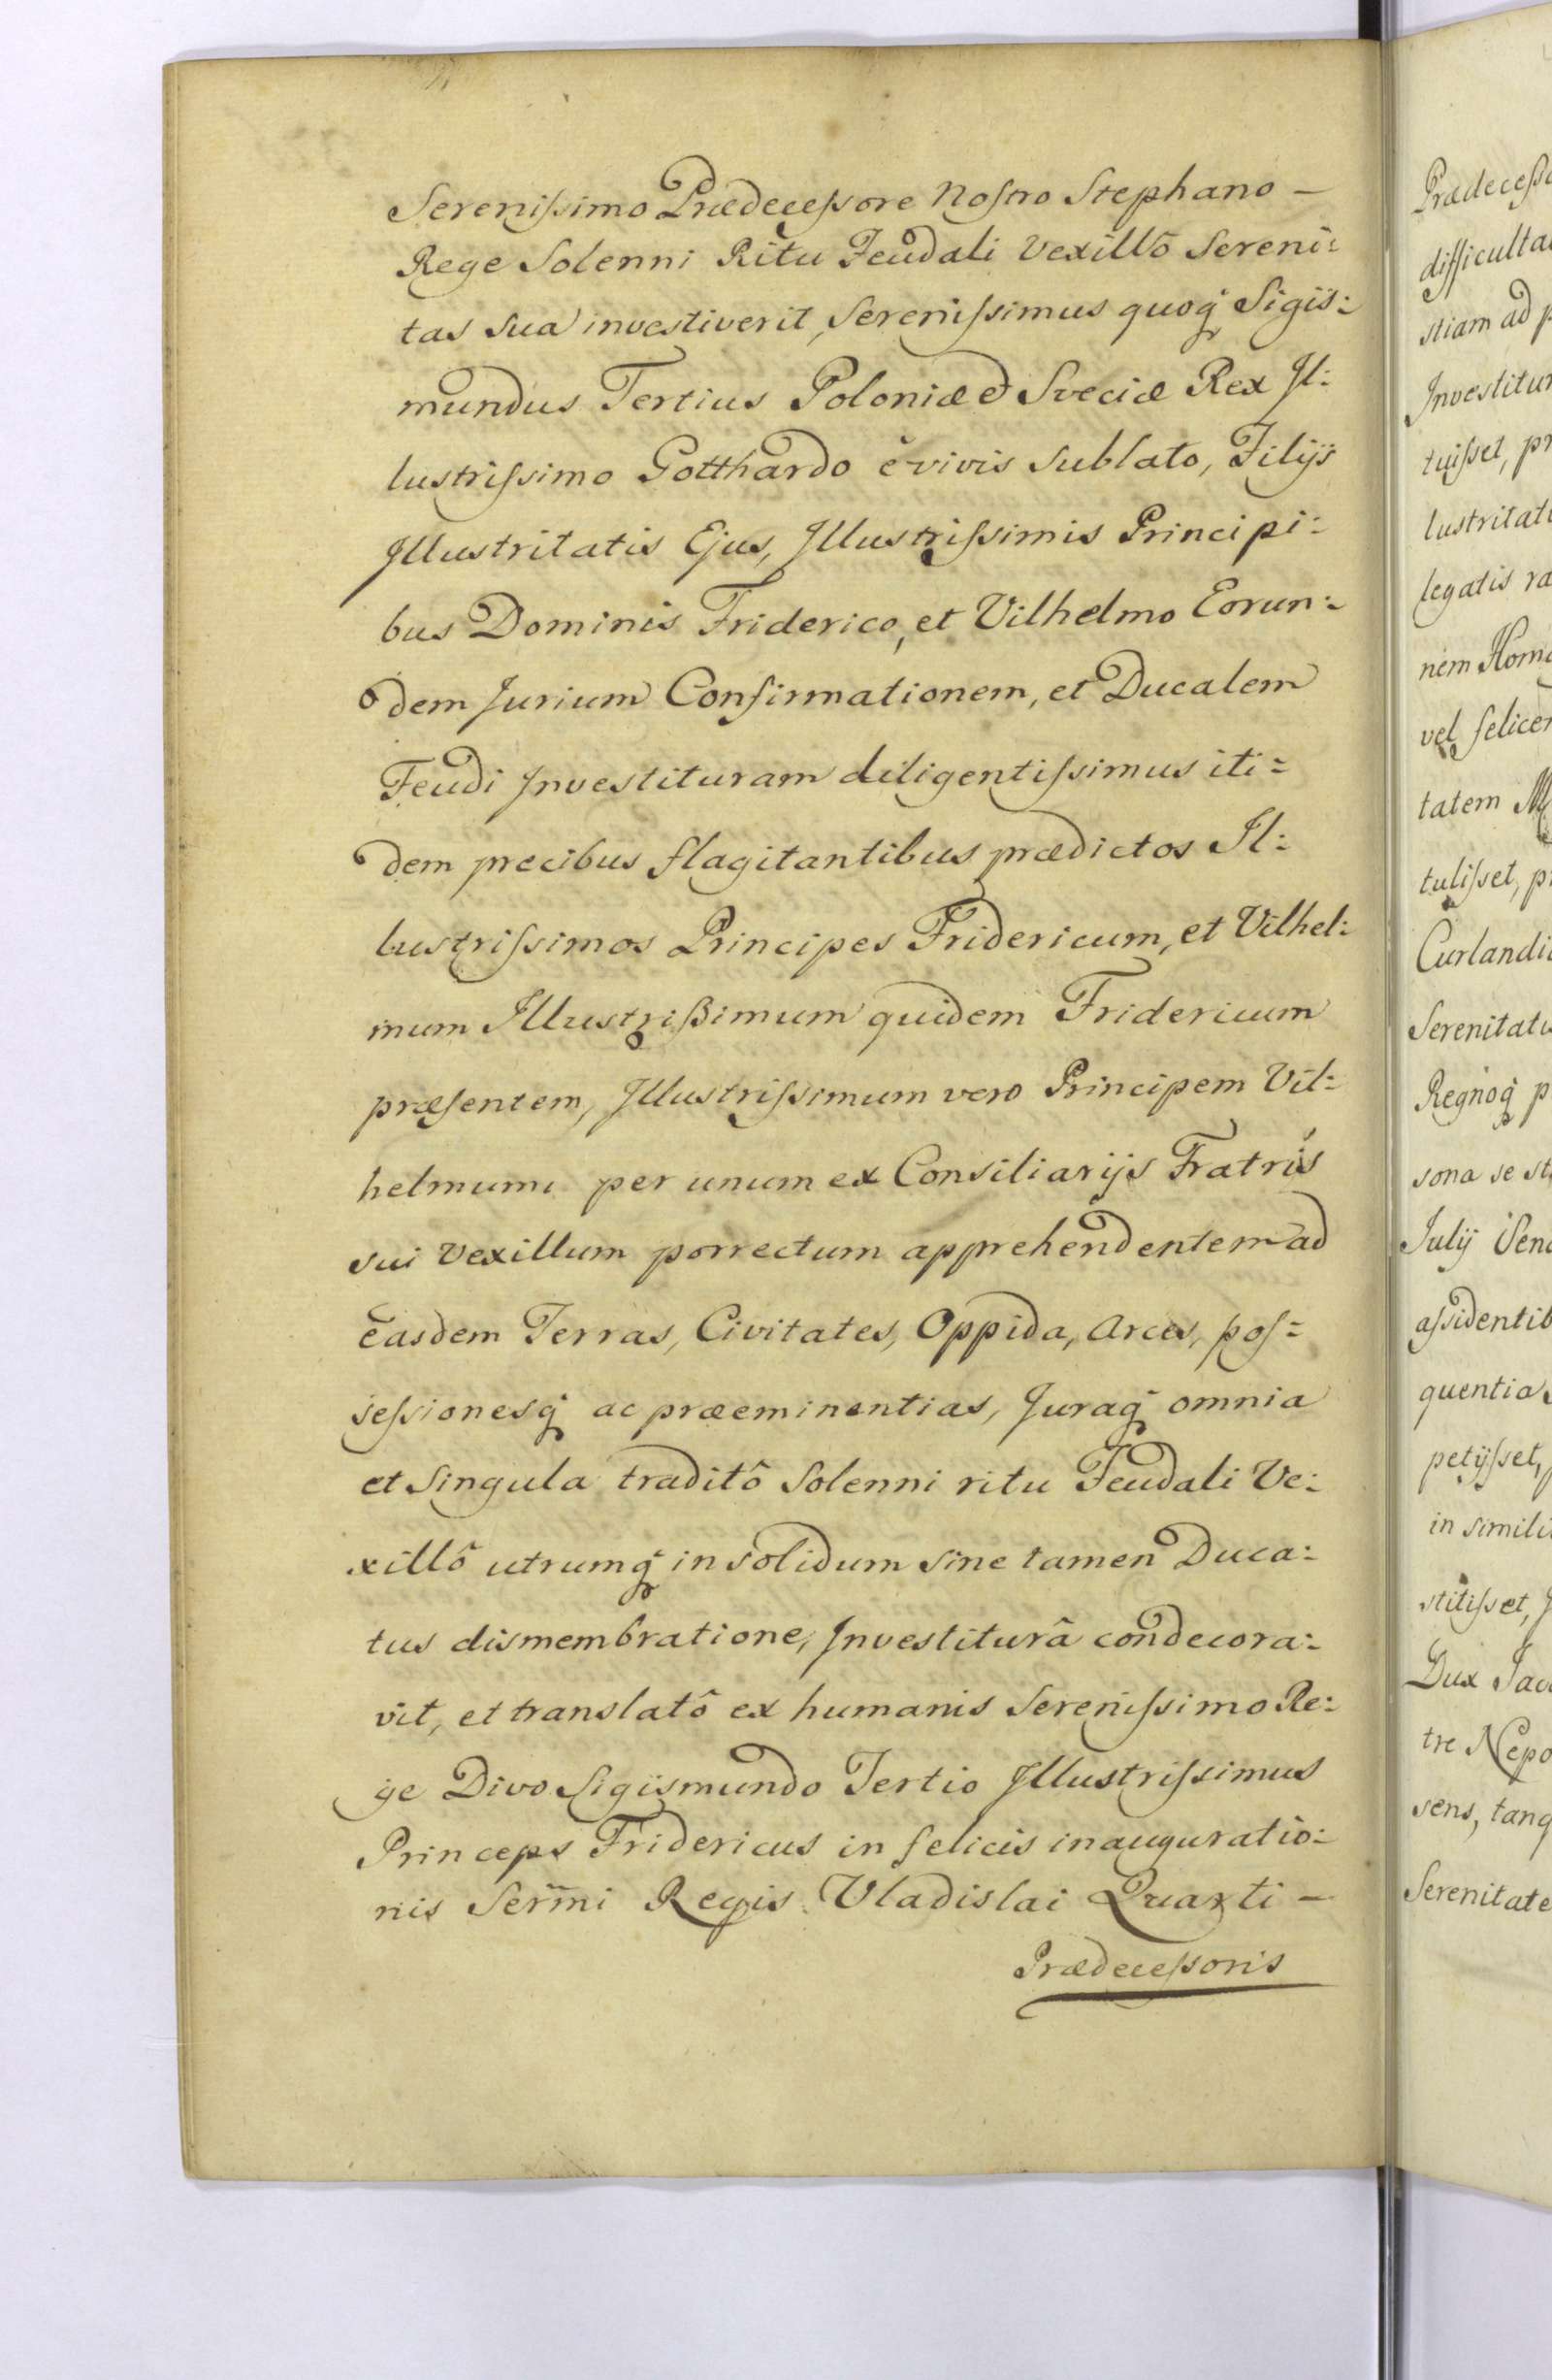 Serenissimo Prædecessore Nostro Stephano –
Rege Solenni Ritu Feudali Vexillô Sereni:
tas Sua investiverit, Serenissimus quoq̃ Sigis:
mundus Tertius Poloniæ & Sveciæ Rex Il:
lustrissimo Gotthardo è vivis Sublato, Filijs
Illustritatis Ejus, Illustrissimis Principi:
bus Dominis Friderico, et Vilhelmo Eorun:
dem Jurium Confirmationem, et Ducalem
Feudi Investituram diligentissimus iti:
dem precibus flagitantibus prædictos Il:
lustrissimos Principes Fridericum, et Vilhel:
mum Illustrißimum quidem Fridericum
præsentem, Illustrissimum vero Principem Vil:
helmum per unum ex Consiliarijs Fratris
sui Vexillum porrectum apprehendentem ad
easdem Terras, Civitates, Oppida, Arces, pos:
sessionesq̃ ac præeminentias, Juraq̃ omnia
et Singula traditô Solenni ritu Feudali Ve:
xillô utrumq̃ in solidum sine tamen Duca:
tus dismembratione, Investiturâ condecora:
vit, et translatô ex humanis Serenissimo Re:
ge Divo Sigismundo Tertio Illustrissimus
Princeps Fridericus in felicis inauguratio:
nis Serm̃i Regis Vladislai Quarti –
Prædecessoris
Prædecess
difficulta
stiam ad p
Investitur
tuisset, pr
lustritati
legatis ra
nem Hom
vel felicem
tatem M
tulisset, p
Curlandi
Serenitati
Regnoq̃ p
sona se st
Julij Vene
assidentib
quentia
petijsset,
in simili
stitisset, J
Dux Jac
tre Nepo
sens, tanq
Serenitate